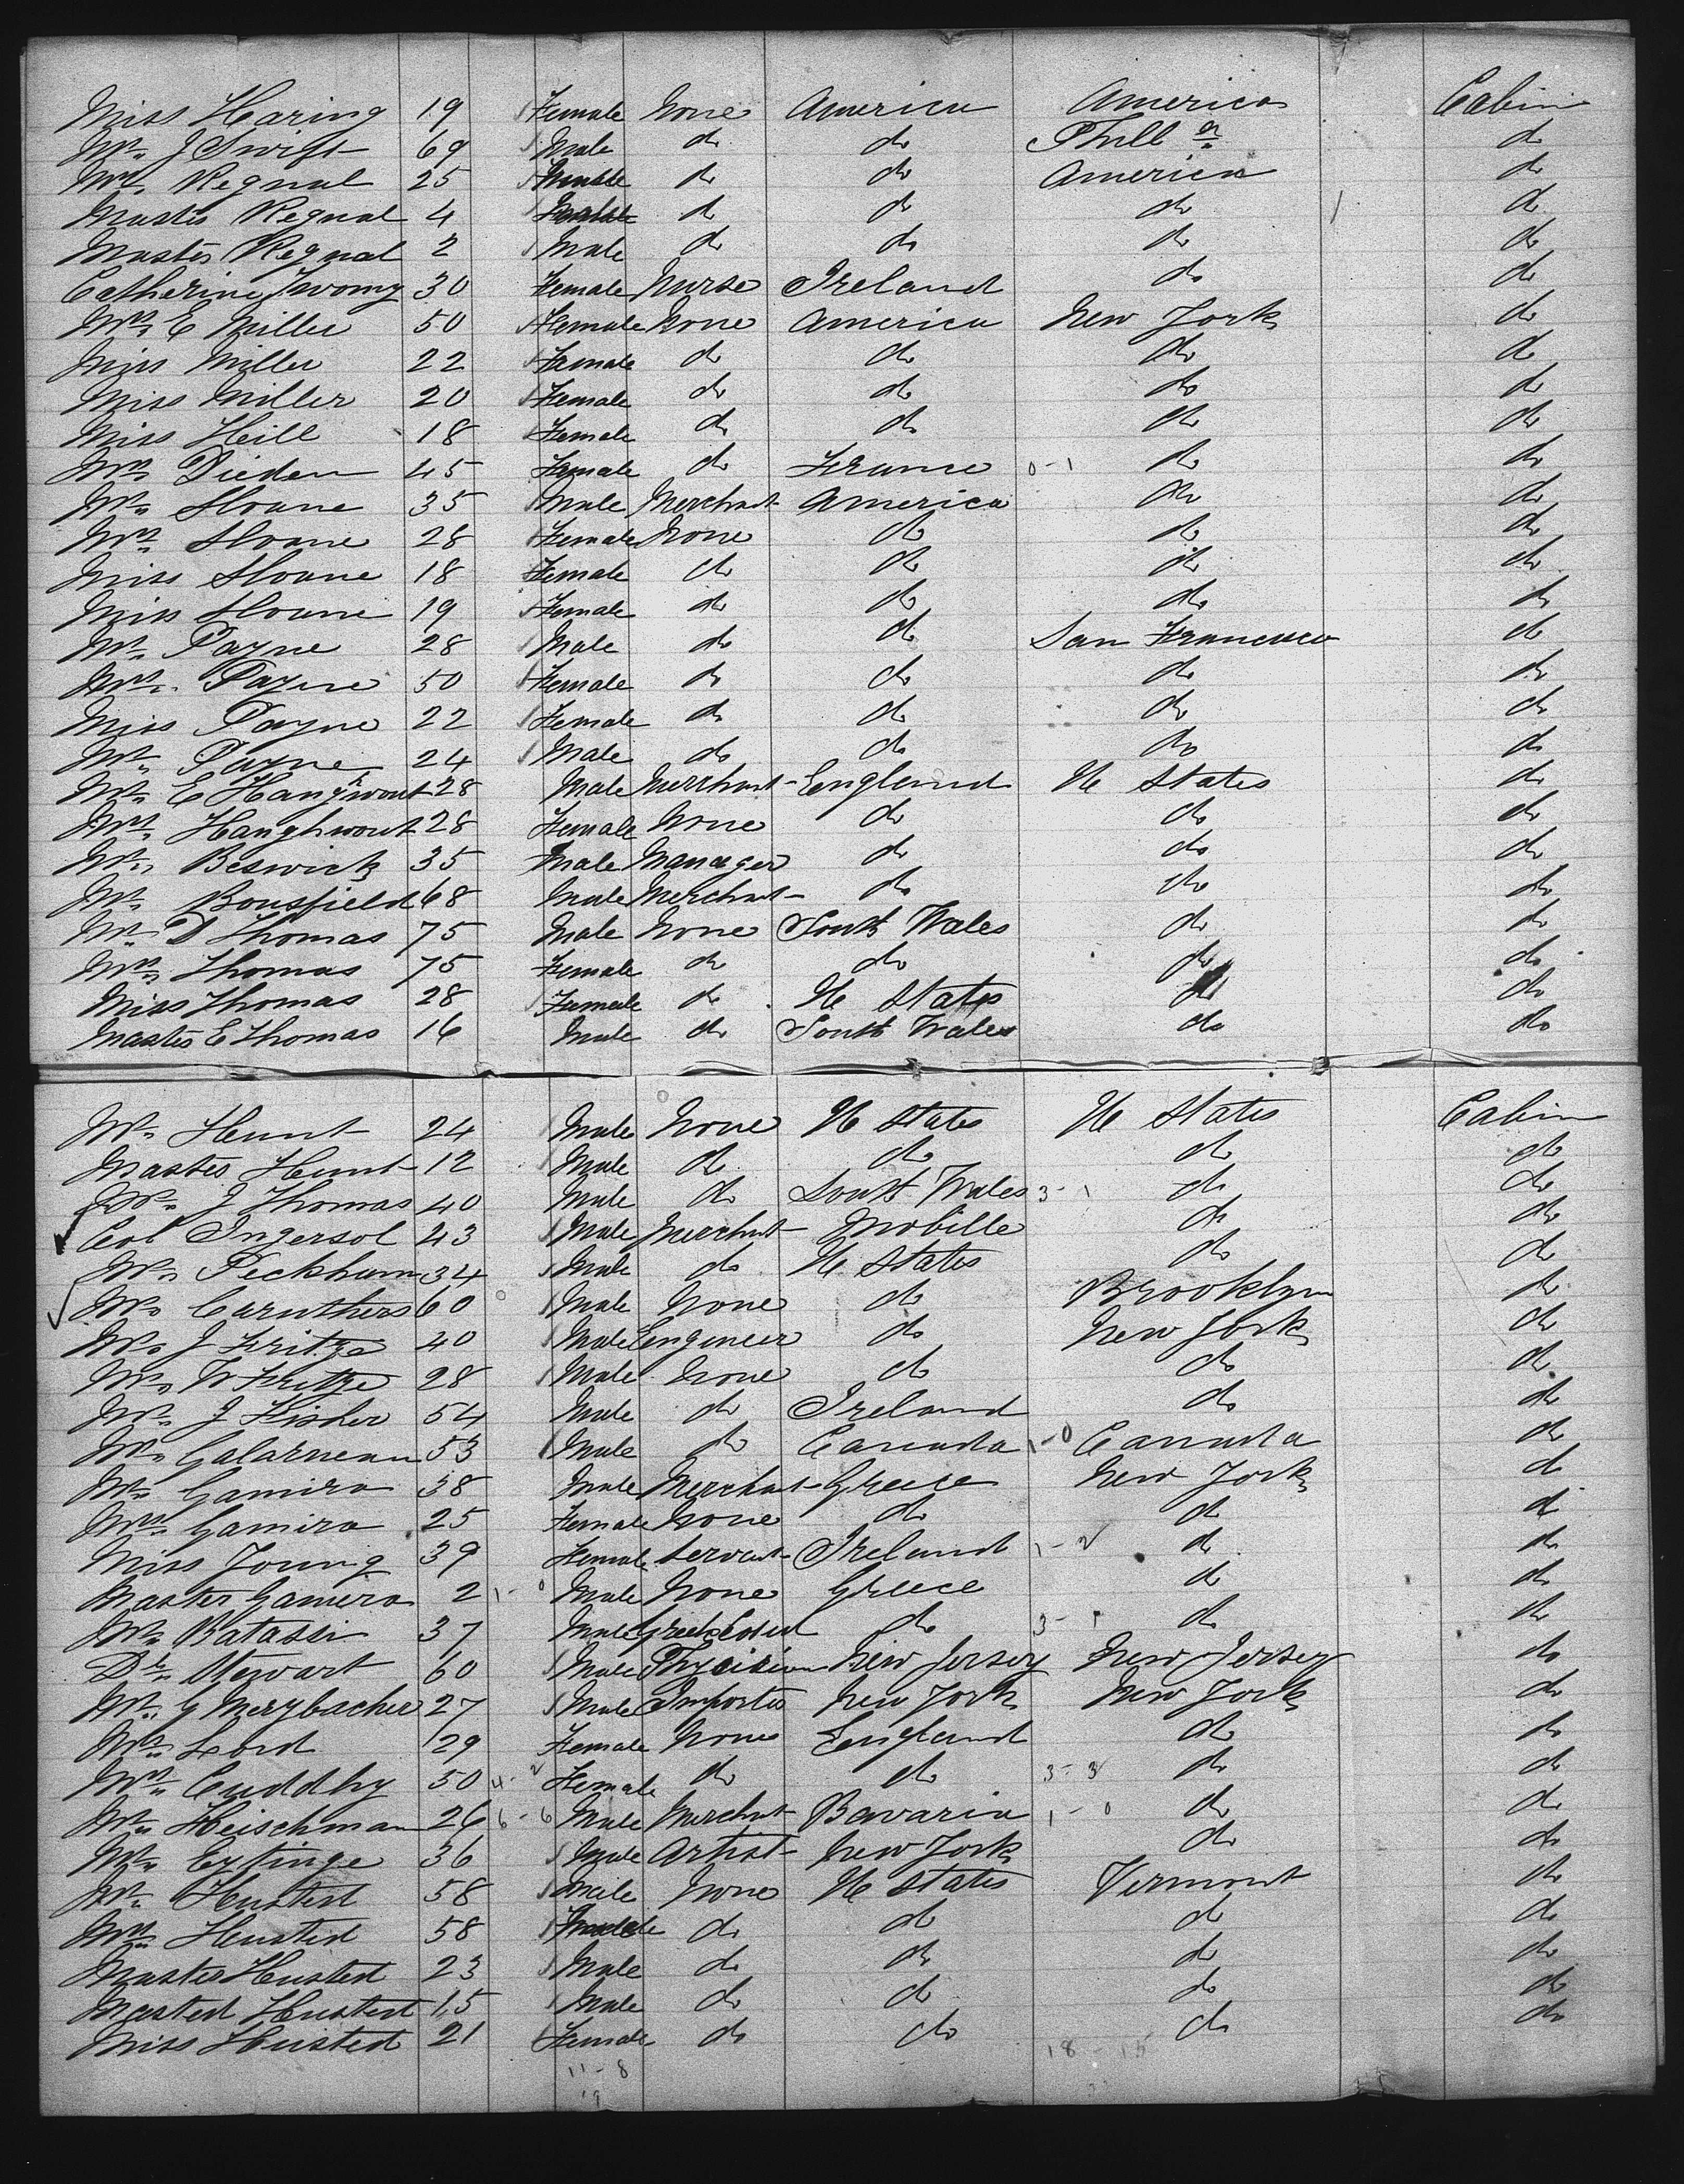 Miss Haring 19 Female None America America Cabin
Mr. J Swift 69 Male do do Phill a do
Mrs. Regnal 25 do do America do
Master Regnal 4 do do do do
Master Regnal 2 Male do do do do
Catherine Twomy 30 Female Nurse Ireland do do
Mrs. E Miller 50 Female None America New York do
Miss Miller 22 Female do do do do
Miss Miller 20 Female do do do do
Miss Heill 18 Female do do do do
Mrs Dieden 45 Female do France 0-1 do do
Mr. Sloane 35 Male Merchant America do do
Mrs. Sloane 28 Female None do do do
Miss Sloane 18 Female do do do do
Miss Sloane 19 Female do do do do
Mr. Payne 28 Male do do San Francisco do
Mrs. Payne 50 Female do do do do
Miss Payne 22 Female do do do do
Mr. Payne 24 Male do do do do
Mr. E Haughwout 28 Male Merchant England U States do
Mrs. Haughwout 28 Female None do do do
Mr. Beswick 35 Male Manager do do do
Mr. Bousfield 68 Male Merchant do do do
Mr. D Thomas 75 Male None South Wales do do
Mrs. Thomas 75 Female do do do do
Miss Thomas 28 Female do U States do do
Master E Thomas 16 Male do South Wales do do
Mr. Hunt 24 Male None U States U States Cabin
Master Hunt 12 Male do do do do
Mr. J Thomas 40 Male do South Wales 3-1 do do
Col Ingersol 43 Male Merchant Mobille do do
Mr. Peckham 34 Male do U States do do
Mr. Caruthers 60 Male None do Brooklyn do
Mr. J Fritze 40 Male Engineer do New York do
Mr. W Fritze 28 Male None do do do
Mr. J Fisher 54 Male do Ireland do do
Mr. Galarneau 53 Male do Canada 1-0 Canada do
Mr. Gamira 38 Male Merchant Greece New York do
Mrs. Gamira 25 Female None do do do
Miss Young 39 Female Servant Ireland 1-2 do do
Master Gamira 2 1-0 Male None Greece do do
Mr. Batassi 37 Male Greek Consul do 3-1 do do
Dr. Stewart 60 Male Physician New Jersey New Jersey do
Mr. G Merzbacher 27 Male Importer New York New York do
Mrs. Lord 29 Female None England do do
Mrs. Cuddhy 50 4-2 Female do do 3-3 do do
Mr. Heischman 26 6-6 Male Merchant Bavaria 1-0 do do
Mr. Eytinge 36 Male Artist New York do do
Mr. Husted 58 Male None U States Vermont do
Mrs. Husted 58 do do do do
Master Husted 23 Male do do do do
Masted Husted 15 Male do do do do
Miss Husted 21 Female do do do do
11-8 18-15
19